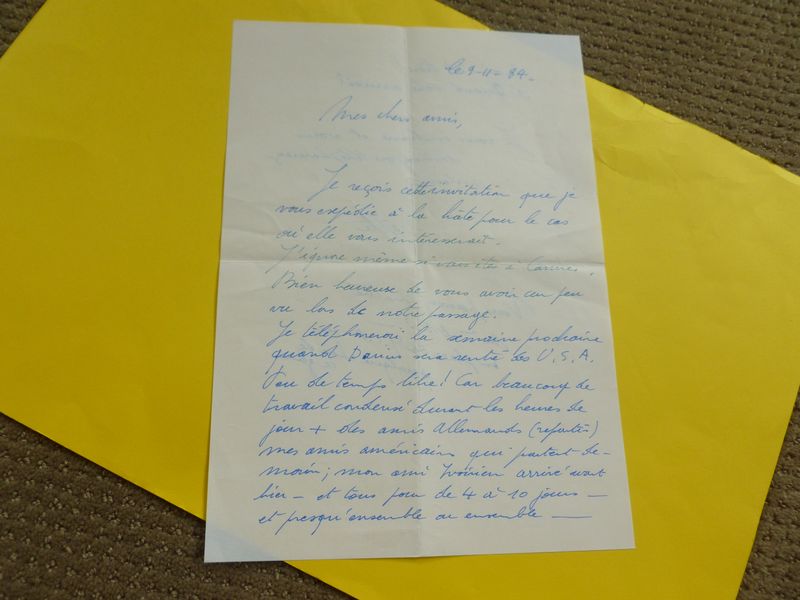 le 9-11-84.
Mes chers amis,
Je reçois cette invitation que je
vous expédie à la hâte pour le cas
où elle vous intéresserait.
J'ignore même si vous êtes à Cannes.
Bien heureuse de vous avoir un peu
vu lors de notre passage.
Je téléphonerai la semaine prochaine
quand Darius sera rentré des U.S.A.
Peu de temps libre! Car beaucoup de
travail condensé durant les heures de
jour + des amis Allemands (repartis)
mes amis américains qui partent de-
main; mon ami Ivoirien arrivé avant
hier - et tous pour de 4 à 10 jours -
et presqu'ensemble ou ensemble -